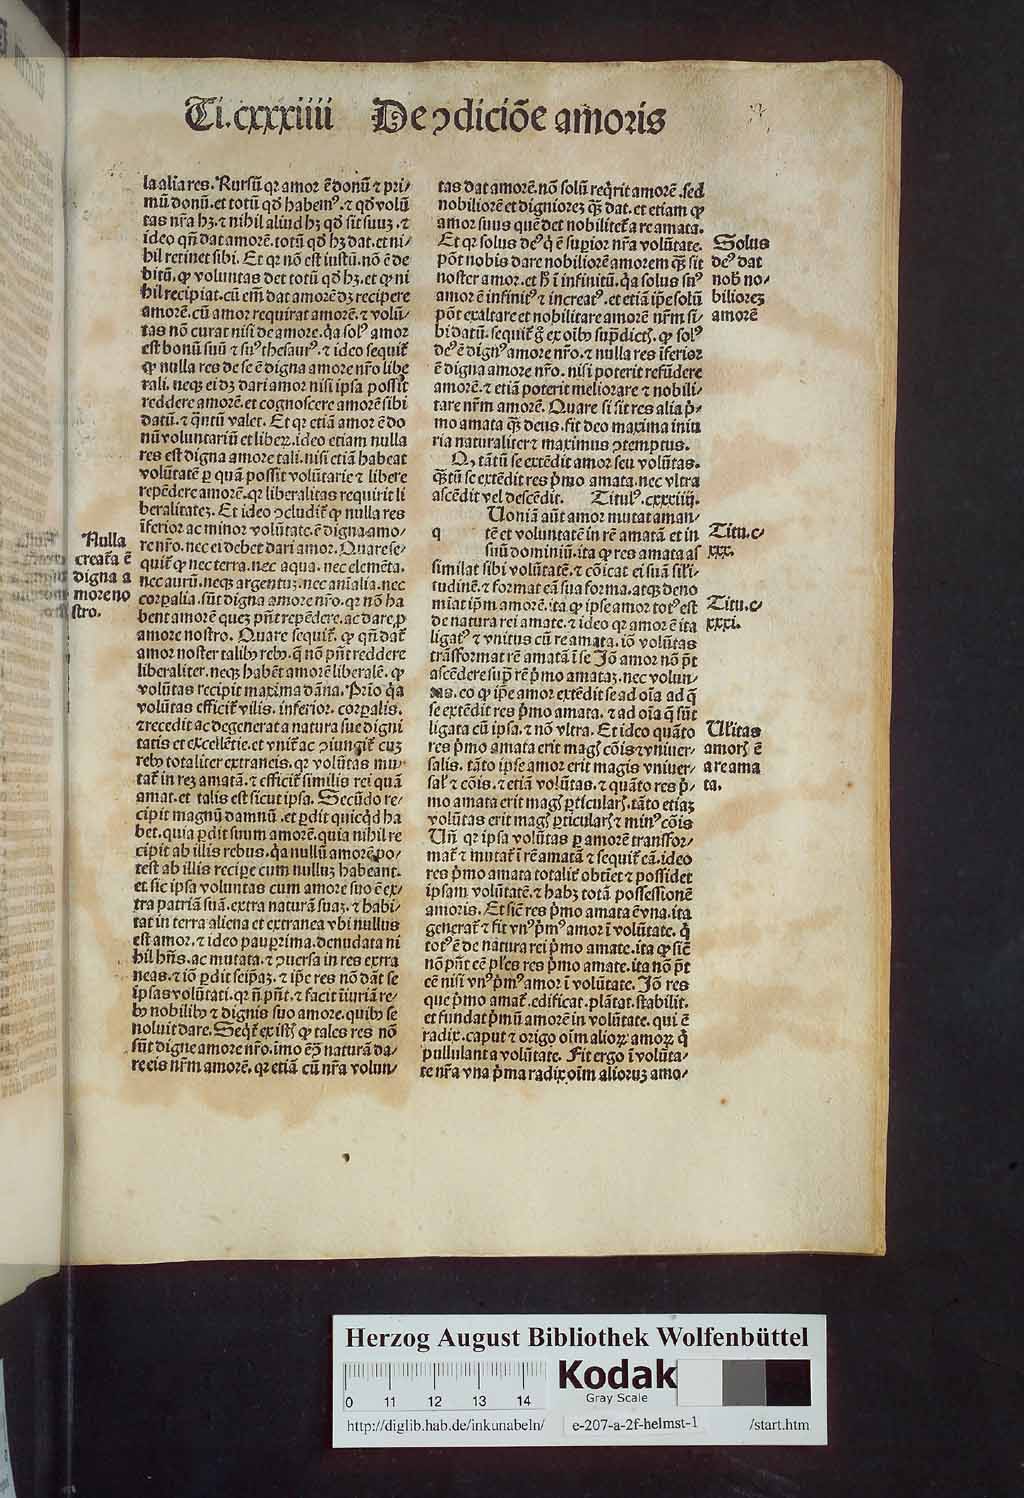 Ti.cxxxiiii De ↄdiciõe amoris
la alia res. Rursũ qꝛ amor ẽ donũ ⁊ pri/
mũ donũ. et totũ qđ habemꝰ. ⁊ qđ volũ
tas nr̃a hꝫ. ⁊ nihil aliud hꝫ qđ sit suuꝫ. ⁊
ideo qñ dat amorẽ. totũ qđ hꝫ dat. et ni/
hil retinet sibi. Et qꝛ nõ est iustũ. nõ ẽ de
bitũ. ꝙ voluntas det totũ qđ hꝫ. et ꝙ ni
hil recipiat. cũ em̃ dat amorẽ dꝫ recipere
amorẽ. cũ amor requirat amorẽ. ⁊ volũ/
tas nõ curat nisi de amore. q̃a solꝰ amor
est bonũ suũ ⁊ suꝰ thesaurꝰ. ⁊ ideo sequit̃
ꝙ nulla res de se ẽ digna amore nr̃o libe
rali. neqꝫ ei dꝫ dari amor nisi ipsa possit
reddere amorẽ. et cognoscere amorẽ sibi
datũ. ⁊ q̃ntũ valet. Et qꝛ etiã amor ẽ do
nũ voluntariũ et liberꝫ. ideo etiam nulla
res est digna amore tali. nisi etiã habeat
volũtatẽ ꝑ quã possit volũtarie ⁊ libere
repẽdere amorẽ. qꝛ liberalitas requirit li
beralitateꝫ. Et ideo ↄcludit̃ ꝙ nulla res
ĩferior ac minor volũtate. ẽ digna amo/
re nr̃o. nec ei debet dari amor. Quare se/
quit̃ ꝙ nec terra. nec aqua. nec elemẽta.
nec aurũ. neqꝫ argentuꝫ. nec aĩalia. nec
corꝑalia. sũt digna amore nr̃o. qꝛ nõ ha
bent amorẽ queꝫ pñt repẽdere. ac dare ꝓ
amore nostro. Quare sequit̃. ꝙ qñ dat̃
amor noster talibꝰ rebꝰ. q̃ nõ pñt reddere
liberaliter. neqꝫ habẽt amorẽ liberalẽ. ꝙ
volũtas recipit maxima dãna. Prio q̃a
volũtas efficit̃ vilis. inferior. corꝑalis.
⁊ recedit ac degenerat a natura sue digni
tatis et excellẽtie. et vnit̃ ac ↄiungit̃ cuꝫ
rebꝰ totaliter extraneis. qꝛ volũtas mu/
tat̃ in reꝫ amatã. ⁊ efficit̃ similis rei quã
amat. et talis est sicut ipsa. Secũdo re/
cipit magnũ damnũ. et ꝑdit quicq̃d ha
bet. quia ꝑdit suum amorẽ. quia nihil re
cipit ab illis rebus. q̃a nullũ amorẽ po/
test ab illis recipe cum nulluꝫ habeant.
et sic ipsa voluntas cum amore suo ẽ ex/
tra patriã suã. extra naturã suaꝫ. ⁊ habi/
tat in terra aliena et extranea vbi nullus
est amor. ⁊ ideo pauꝑrima. denudata ni
hil hñs. ac mutata. ⁊ ↄuersa in res extra
neas. ⁊ iõ ꝑdit seipaꝫ. ⁊ ip̃e res nõ dãt se
ipsas volũtati. qꝛ ñ pñt. ⁊ facit ĩiuriã re/
bꝰ nobilibꝰ ⁊ dignis suo amore. quibꝰ se
noluit dare. Seqt̃ ex istis ꝙ tales res nõ
sũt digne amore nr̃o. imo ẽ ↄ̃ naturã da/
re eis nr̃m amorẽ. qꝛ etiã cũ nr̃a volun/
Nulla
creat̃a ẽ
digna a
more no
stro.
tas dat amorẽ. nõ solũ req̃rit amorẽ. sed
nobiliorẽ et digniorez q̃ꝫ dat. et etiam ꝙ
amor suus quẽ det nobilitet̃ a re amata.
Et qꝛ solus deꝰ q̃ ẽ suꝑior nr̃a volũtate.
põt nobis dare nobiliorẽ amorem q̃ꝫ sit
noster amor. et h̃ ĩ infinitũ. q̃a solus suꝰ
amor ẽ infinitꝰ ⁊ increatꝰ. et etiã ip̃e solũ
põt exaltare et nobilitare amorẽ nr̃m si/
bi datũ. sequit̃ g̃ ex oĩbꝰ sup̃dictis. ꝙ solꝰ
deꝰ ẽ dignꝰ amore nr̃o. ⁊ nulla res ĩferior
ẽ digna amore nr̃o. nisi poterit refũdere
amorẽ. ⁊ etiã poterit meliorare ⁊ nobili/
tare nr̃m amorẽ. Quare si sit res alia p̃/
mo amata q̃ꝫ deus. fit deo maxima iniu
ria naturaliter ⁊ maximus ↄtemptus.
Qꝙ tãtũ se extẽdit amor seu volũtas.
q̃ꝫtũ se extẽdit res p̃mo amata. nec vltra
ascẽdit vel descẽdit. Titulꝰ. cxxxiiij.
q Uoniã aũt amor mutat aman/
tẽ et voluntatẽ in rẽ amatã et in
suũ dominiũ. ita ꝙ res amata as
similat sibi volũtatẽ. ⁊ cõicat ei suã sil̃i/
tudinẽ. ⁊ format eã sua forma. atqꝫ deno
miat ip̃m amorẽ. ita ꝙ ipse amor totꝰ est
de natura rei amate. ⁊ ideo qꝛ amor ẽ ita
ligatꝰ ⁊ vnitus cũ re amata. iõ volũtas
trãsformat rẽ amatã ĩ se Iõ amor nõ p̃t
ascẽdere sup̃ rẽ p̃mo amataꝫ. nec volun/
tas. eo ꝙ ip̃e amor extẽdit se ad oĩa ad q̃
se extẽdit res p̃mo amata. ⁊ ad oĩa q̃ sũt
ligata cũ ipsa. ⁊ nõ vltra. Et ideo quãto
res p̃mo amata erit magis cõis ⁊ vniuer/
salis. tãto ipse amor erit magis vniuer/
sal̃ ⁊ cõis. ⁊ etiã volũtas. ⁊ quãto res p̃/
mo amata erit magis ꝑticularis. tãto etiaꝫ
volũtas erit magis ꝑticularis ⁊ minꝰ cõis
Uñ qꝛ ipsa volũtas ꝑ amorẽ transfor/
mat̃ ⁊ mutat̃ ĩ rẽ amatã ⁊ sequit̃ eã. ideo
res p̃mo amata totalit̃ obtiet ⁊ possidet
ipsam volũtatẽ. ⁊ habꝫ totã possessionẽ
amoris. Et siẽ res p̃mo amata ẽ vna. ita
generat̃ ⁊ fit vnꝰ p̃mꝰ amor ĩ volũtate. q̃
totꝰ ẽ de natura rei p̃mo amate. ita ꝙ siẽ
nõ pñt eẽ pl̃es res p̃mo amate. ita nõ p̃t
eẽ nisi vnꝰ p̃mꝰ amor ĩ volũtate. Iõ res
que p̃mo amat̃. edificat. plãtat. stabilit.
et fundat p̃mũ amorẽ in volũtate. qui ẽ
radix. caput ⁊ origo oĩm alioꝝ amoꝝ q̃
pullulant a volũtate. Fit ergo ĩ volũta/
te nr̃a vna p̃ma radix oĩm alioruꝫ amo/
Solus
deꝰ dat
nob̃ no/
bilioreꝫ
amorẽ
Titu.c/
xxx.
Titu.c/
xxxi.
Ul̃itas
amoris ẽ
a re ama
ta.
Herzog August Bibliothek Wolfenbüttel
Kodak
Gray Scale
0 11 12 13 14
http://diglib.hab.de/inkunabeln/ e-207-a-2f-helmst-1 /start.htm